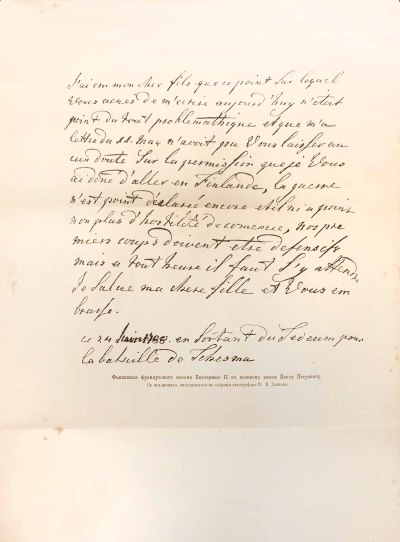 J'ai cru mon cher fils que ce point sur lequel
Vous venes de m'ecrire aujourd'huy n'etoit
point du tout problemathique et que ma
lettre du 22. may n'avoit pu Vous laisser au
cun doute sur la permission que je Vous
ai donc d'aller en Finlande, la guerre
n'est point déclarée encore et il ni a point
non plus d'hostilité de comencé, nos pre
miers coups doivent etre defensifs
mais a tout heure il faut s'y attendre
Je Salue ma chere fille et Vous em
brasse.
ce 24 Juin 1788. en Sortant du Tedeum pour
la bataille de Tchesma
Факсимиле французскаго письма Екатерины II къ великому князю Павлу Петровичу.
Съ подлинника, находящагося въ собраніи автографовъ П. Я. Дашкова.